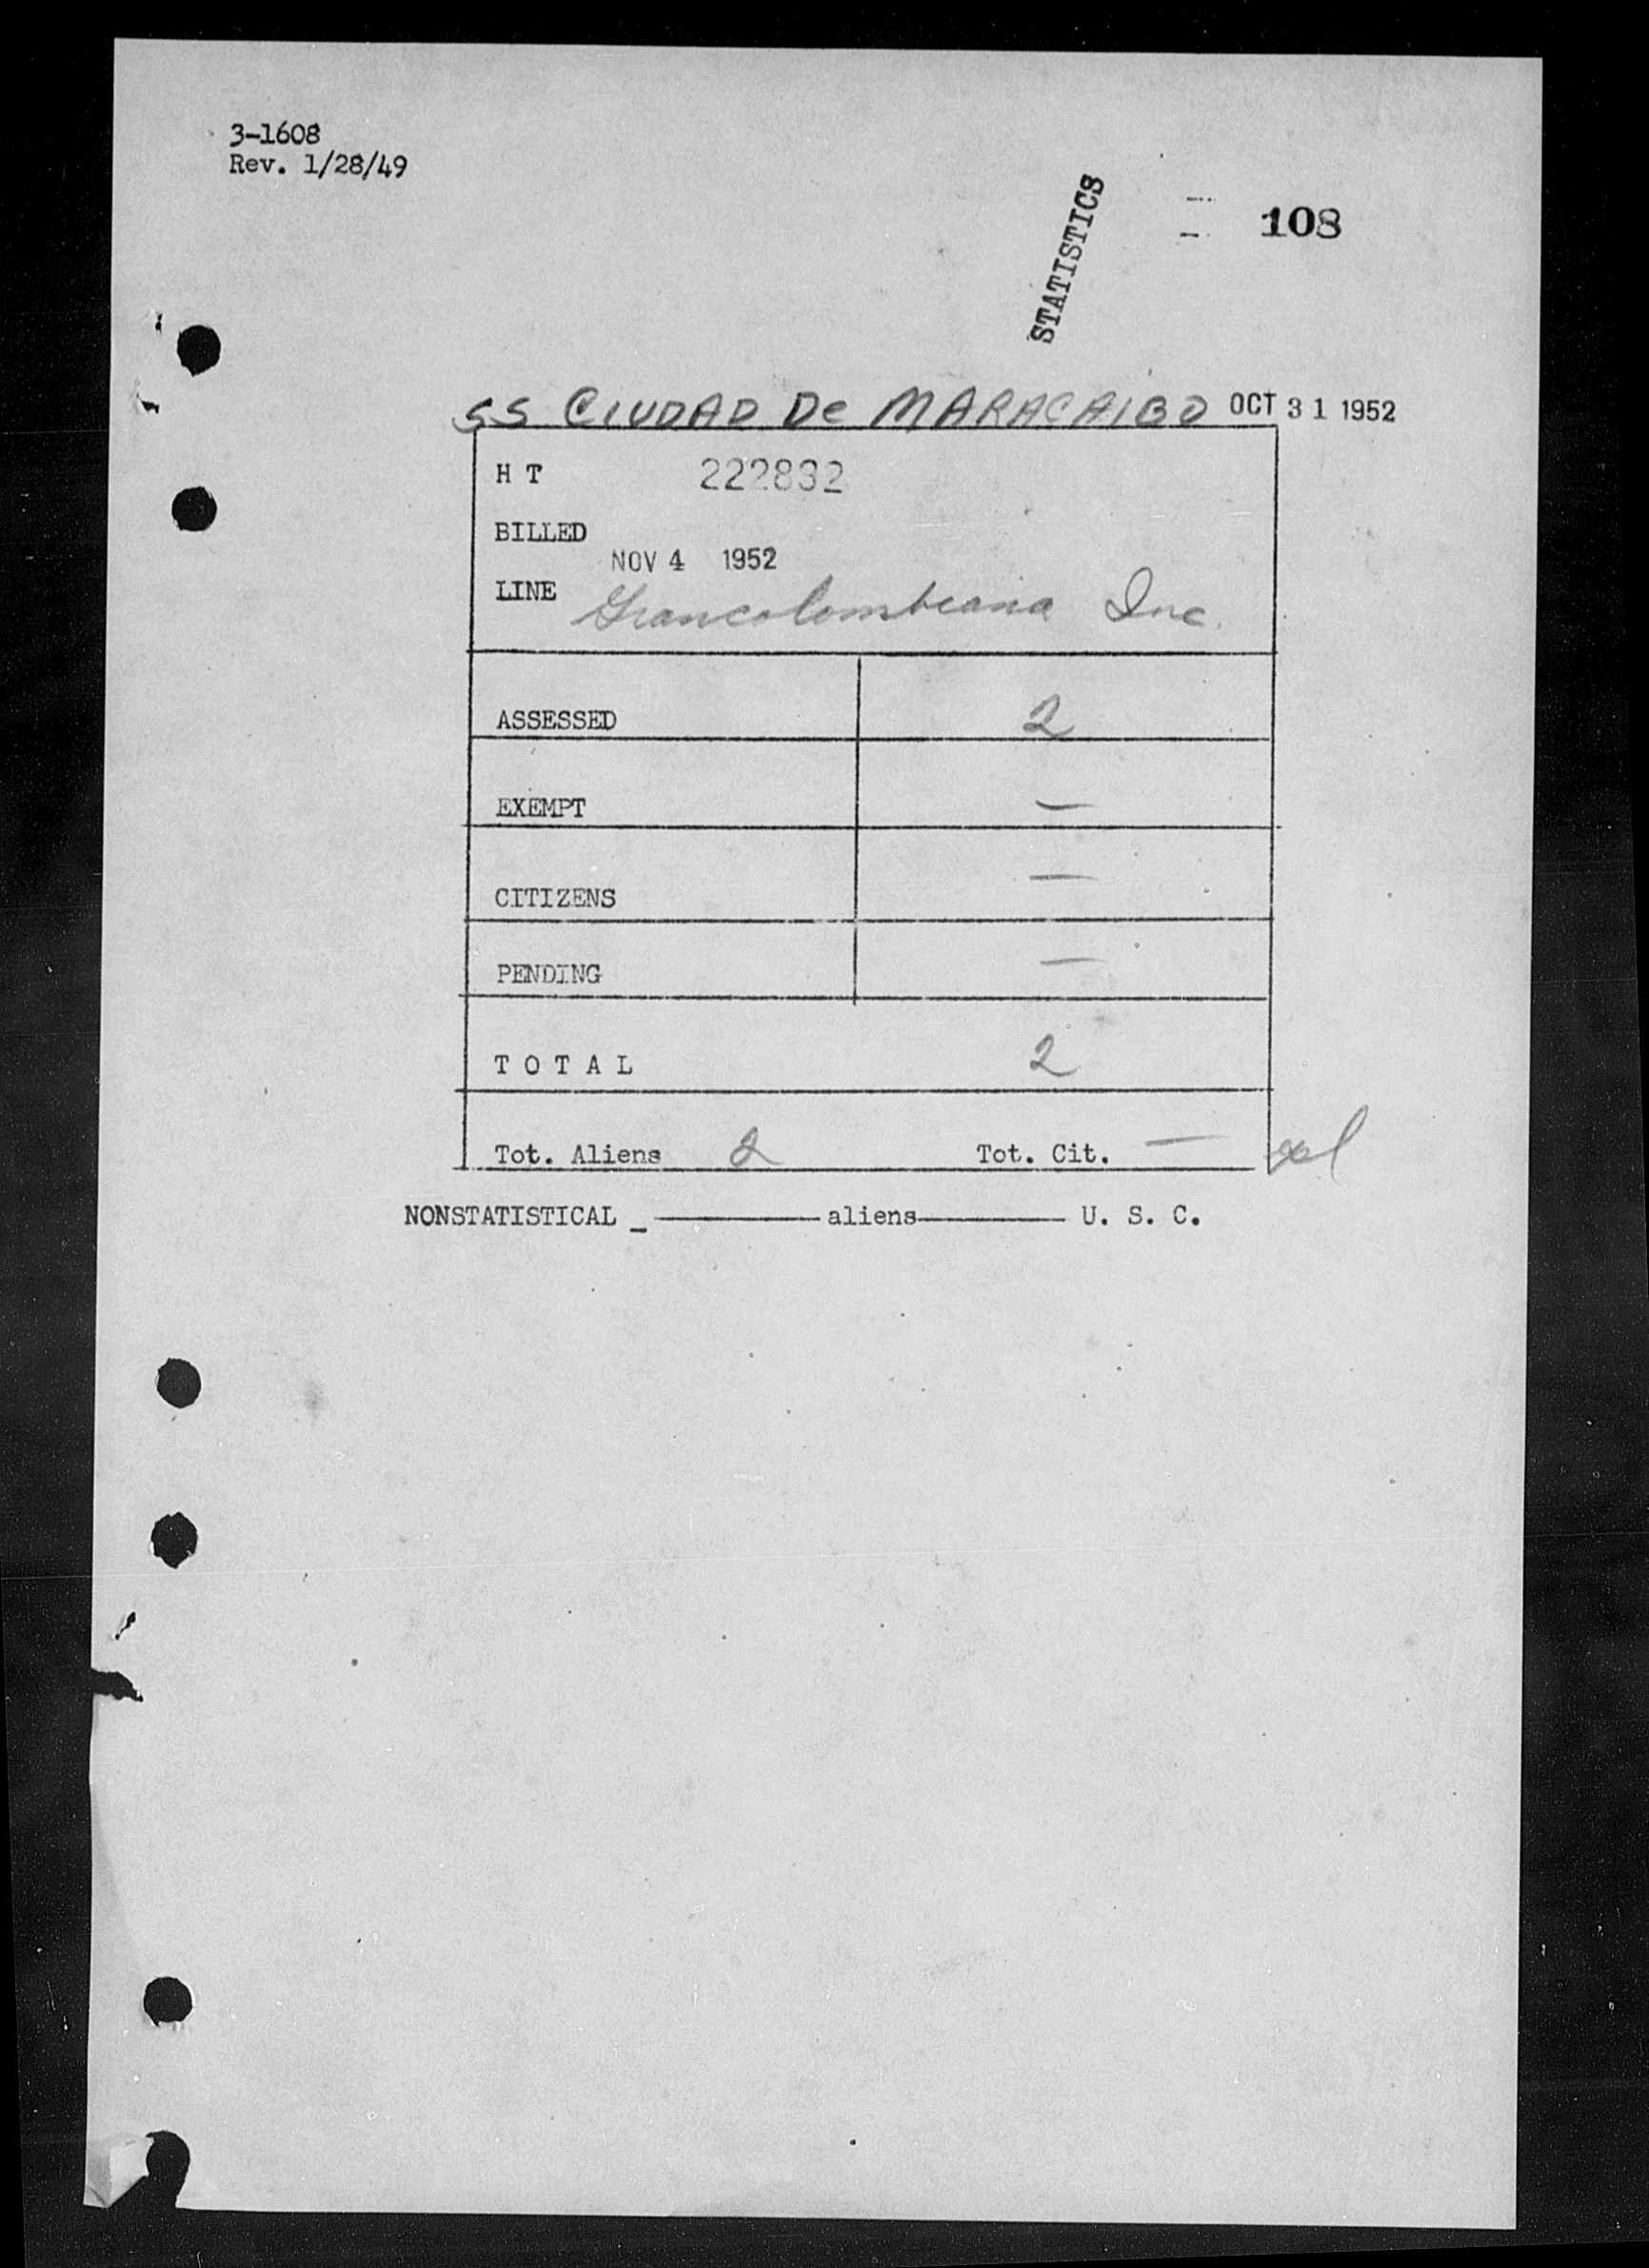 3-1608
Rev. 1/28/49
STATISTICS
108
SS CIUDAD De MARACAIBO OCT 31 1952
H T 222832
BILLED
NOV 4 1952
LINE Grancolombiana Inc.
ASSESSED 2
EXEMPT —
CITIZENS —
PENDING —
T O T A L 2
Tot. Aliens 2 Tot. Cit. —
NONSTATISTICAL _ ——— aliens ——— U. S. C.